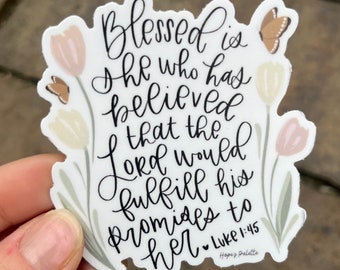 Blessed is
she who has
believed
that the
Lord would
fulfill his
promises to
her ♥ Luke 1:45
Hope's Palette